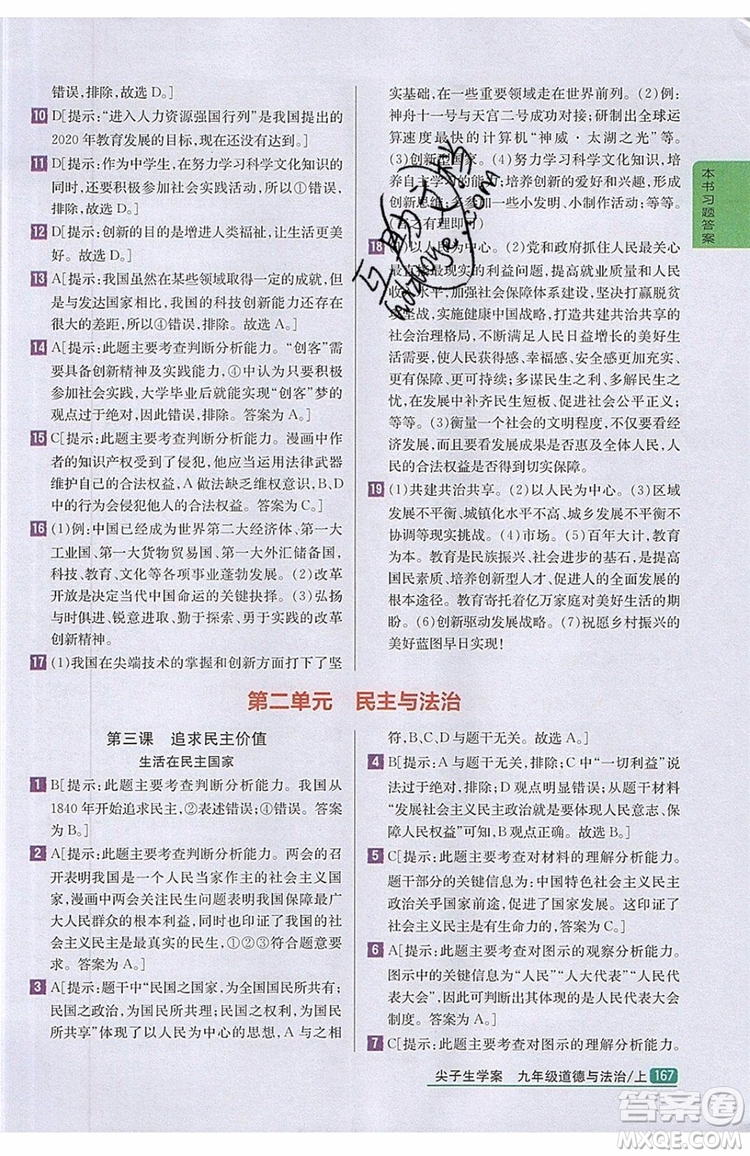 错误,排除,故选 D。]
10 D[提示:“进入人力资源强国行列”是我国提出的
2020 年教育发展的目标,现在尚没有实现。]
11 D[提示:作为中学生,在努力学习科学文化知识的
同时,还要积极参加社会实践活动,所以①错误,排
除,故选 D。]
12 D[提示:创新的目的是增进人类福祉,让生活更
美好。]
13 A[提示:我国虽然在某些领域取得一定的成就,但
是与发达国家相比,我国的科技创新能力总体存在
很大的差距,所以④错误,排除,故选 A。]
14 A[提示:此题主要考查判断分析能力。“创客”需
要具备创新精神及实践能力。④中认为只要具备创
新精神及实践能力,大学毕业后就能实现“创客”梦的
观点过于绝对,因此错误,排除。答案为 A。]
15 C[提示:此题主要考查判断分析能力。漫画中作
者的知识产权受到了侵犯,他应该运用法律武器
维护自己的合法权益,A 做法缺乏维权意识,B、D
行为会侵犯他人的合法权益。答案为 C。]
16 (1)例:中国已经成为世界第二大经济体、第一大
工业国、第一大货物贸易国、第一大外汇储备国、
科技、教育、文化等各项事业蓬勃发展。(2)改革
开放是决定当代中国命运的关键抉择。(3)弘扬
与时俱进、锐意进取、勤于探索、勇于实践的改革
创新精神。
17 (1)我国在尖端技术的掌握和创新方面打下了坚
实基础,在一些重要领域走在世界前列。(2)例:
神舟十一号与天宫二号成功对接;研制出全球运
算速度最快的计算机“神威·太湖之光”;等等。
(3)创新型国家。(4)努力学习科学文化知识,打
牢创新的知识基础,培养创新的爱好和兴趣,开动
创新思维;多进行一些小发明、小制作活动等。
(言之有理即可)
18 (1)以人民为中心。(2)党和政府抓住人民最关
心最直接最现实的利益问题,提高就业质量和人民
收入水平,加强社会保障体系建设,坚决打赢脱贫
攻坚战,实施健康中国战略,打造共建共治共享的
社会治理格局,不断满足人民日益增长的美好生
活需要,使人民获得感、幸福感、安全感更加充实、
更有保障、更可持续;多谋民生之利、多解民生之忧,
在发展中补齐民生短板、促进社会公平正义;
等等。(3)衡量一个社会的文明程度,不仅要看经
济发展,而且要看发展成果是否惠及全体人民,人
民的合法权益是否得到切实保障。
19 (1)共建共治共享。(2)以人民为中心。(3)区域
发展不平衡、城镇化水平不高、城乡发展不平衡不
协调等现实挑战。(4)市场。(5)百年大计,教育
为本。教育是民族振兴、社会进步的基石,是提高
国民素质、培养创新型人才、促进人的全面发展的
根本途径。教育寄托着亿万家庭对美好生活的期
盼。(6)生活水平、健康水平。(7)祝愿乡村振兴的
美好蓝图早日实现!
本书习题答案
互助文档
hdzwye.com
第二单元 民主与法治
第三课 追求民主价值
生活在民主国家
1 B[提示:此题主要考查判断分析能力。我国从
1840 年开始追求民主,②表述错误;④错误。答案
为 B。]
2 A[提示:此题主要考查判断分析能力。两会的召
开表明我国是一个人民当家作主的社会主义国
家,漫画中两会关注的民生问题表明我国保障最广
大人民群众的根本利益,同时也印证了我国的社
会主义民主是最真实的民主,①②④符合题意要
求。答案为 A。]
3 A[提示:题干中“民国之国家,为全国国民所共有;
民国之政治,为国民所共理;民国之权利,为国民
所共享”体现了以人民为中心的思想,A 与之相
符,B、C、D 与题干无关。故选 A。]
4 B[提示:此题主要考查判断分析能力。A 观点与
题干无关,排除;C 中“一切利益”说法过于绝对,
排除;D 观点明显错误,排除;而题干中的关键信息
“发展社会主义民主政治就是要体现人民意志、
保障人民权益”可知,B 观点正确。答案为 B。]
5 C[提示:此题主要考查对材料的理解分析能力。
题干部分的关键信息体现了发展社会主义民主政
治关乎国家前途命运。中国的实践充分印证了中
国社会主义民主是有生命力的。答案为 C。]
6 A[提示:此题主要考查对图示的观察分析能力。
图示中的关键信息为“人民”“人大代表”“人民代
表大会”,据此可判断出其体现的是人民代表大会
制度。答案为 A。]
7 C[提示:此题主要考查对图示的理解分析能力。
尖子生学案 九年级道德与法治/上 167
答案圈
MXQE.COM